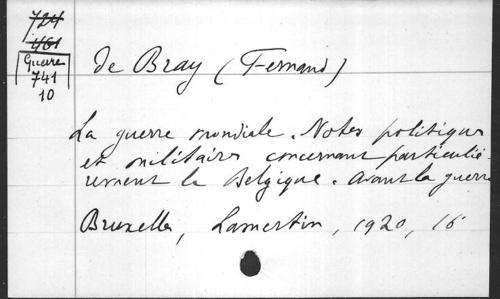 724
461
Guerre
741
10
de Bray (Fernand)
La guerre mondiale. Notes politiques
et militaires concernant particuliè
rement la Belgique. Avant la guerre
Bruxelles, Lamertin, 1920, 16°